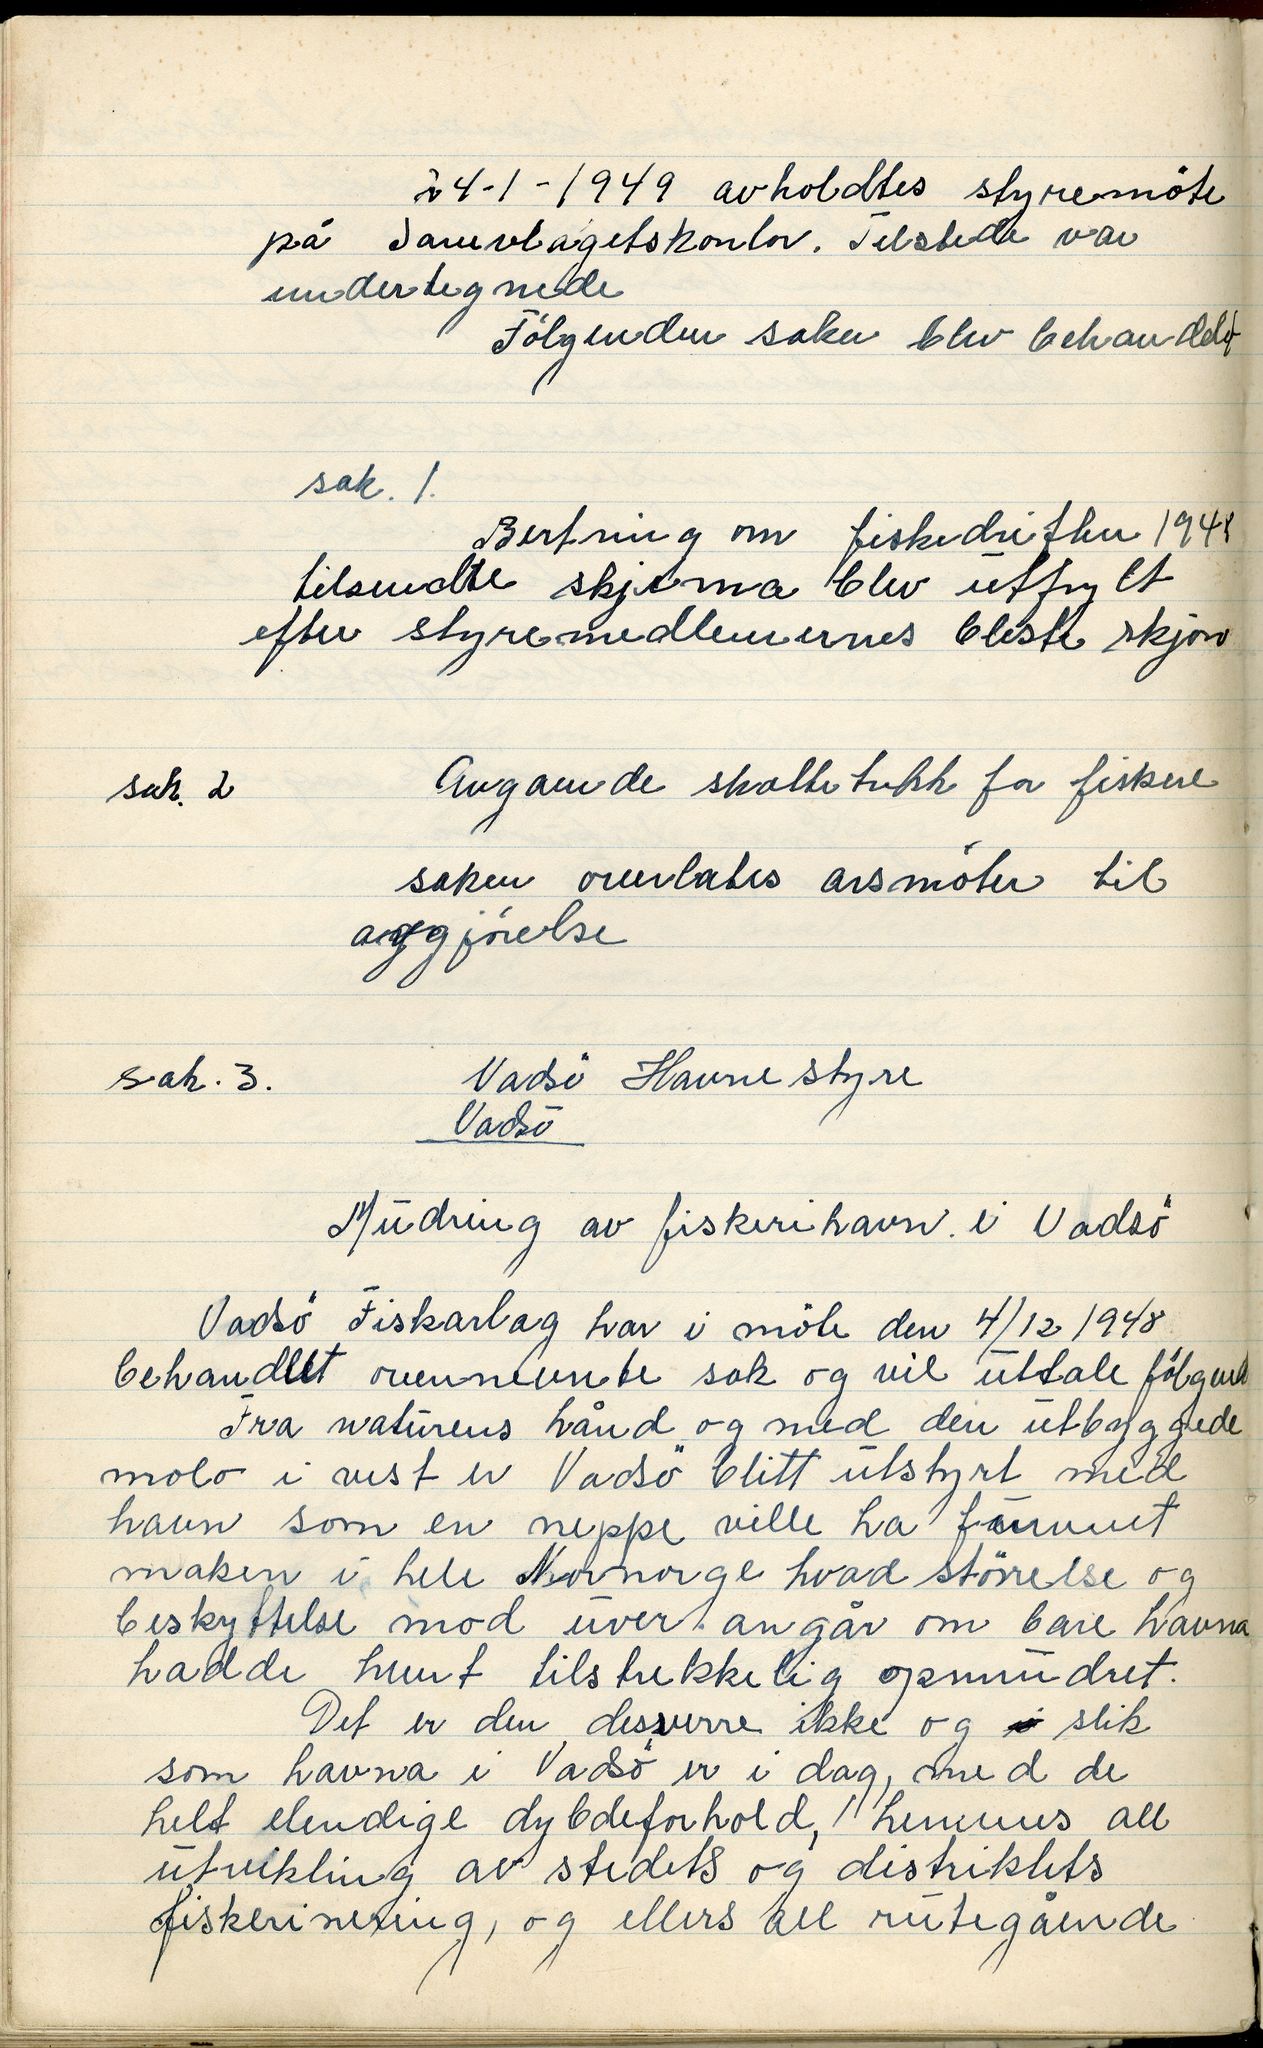 24-1-1949 avholdtes styremöte
på Samvlagetskontor. Tilstede var
undertegnede
Fölgenden saker blev behanddelt
sak. 1.
Bertning om fiskedriften 1948
tilsendte skjema blev utfylt
efter styremedlemernes beste skjøn
sak. 2 Angaende skattetrekk for fiskere
saken overlates arsmöter til
avgjörelse
sak. 3. Vadsö Havnestyre
Vadsö
Mudring av fiskerihavn. i Vadsö
Vadsö Fiskarlag har i möte den 4/12 1948
behandlet ovennevnte sak og vil uttale fölgend
Fra naturens hånd og med den utbyggede
molo i vest er Vadsö blitt utstyrt med
havn som en neppe ville ha funnet
maken i hele Nornorge hvad störrelse og
beskyttelse mod uver angår om bare havna
hadde hvert tilstrekkelig opmudret.
Det er den desverre ikke og slik
som havna i Vadsö er i dag, med de
helt elendige dybdeforhold, hemmes all
utvikling av stedets og distriktets
fiskerinering, og ellers all rutegående